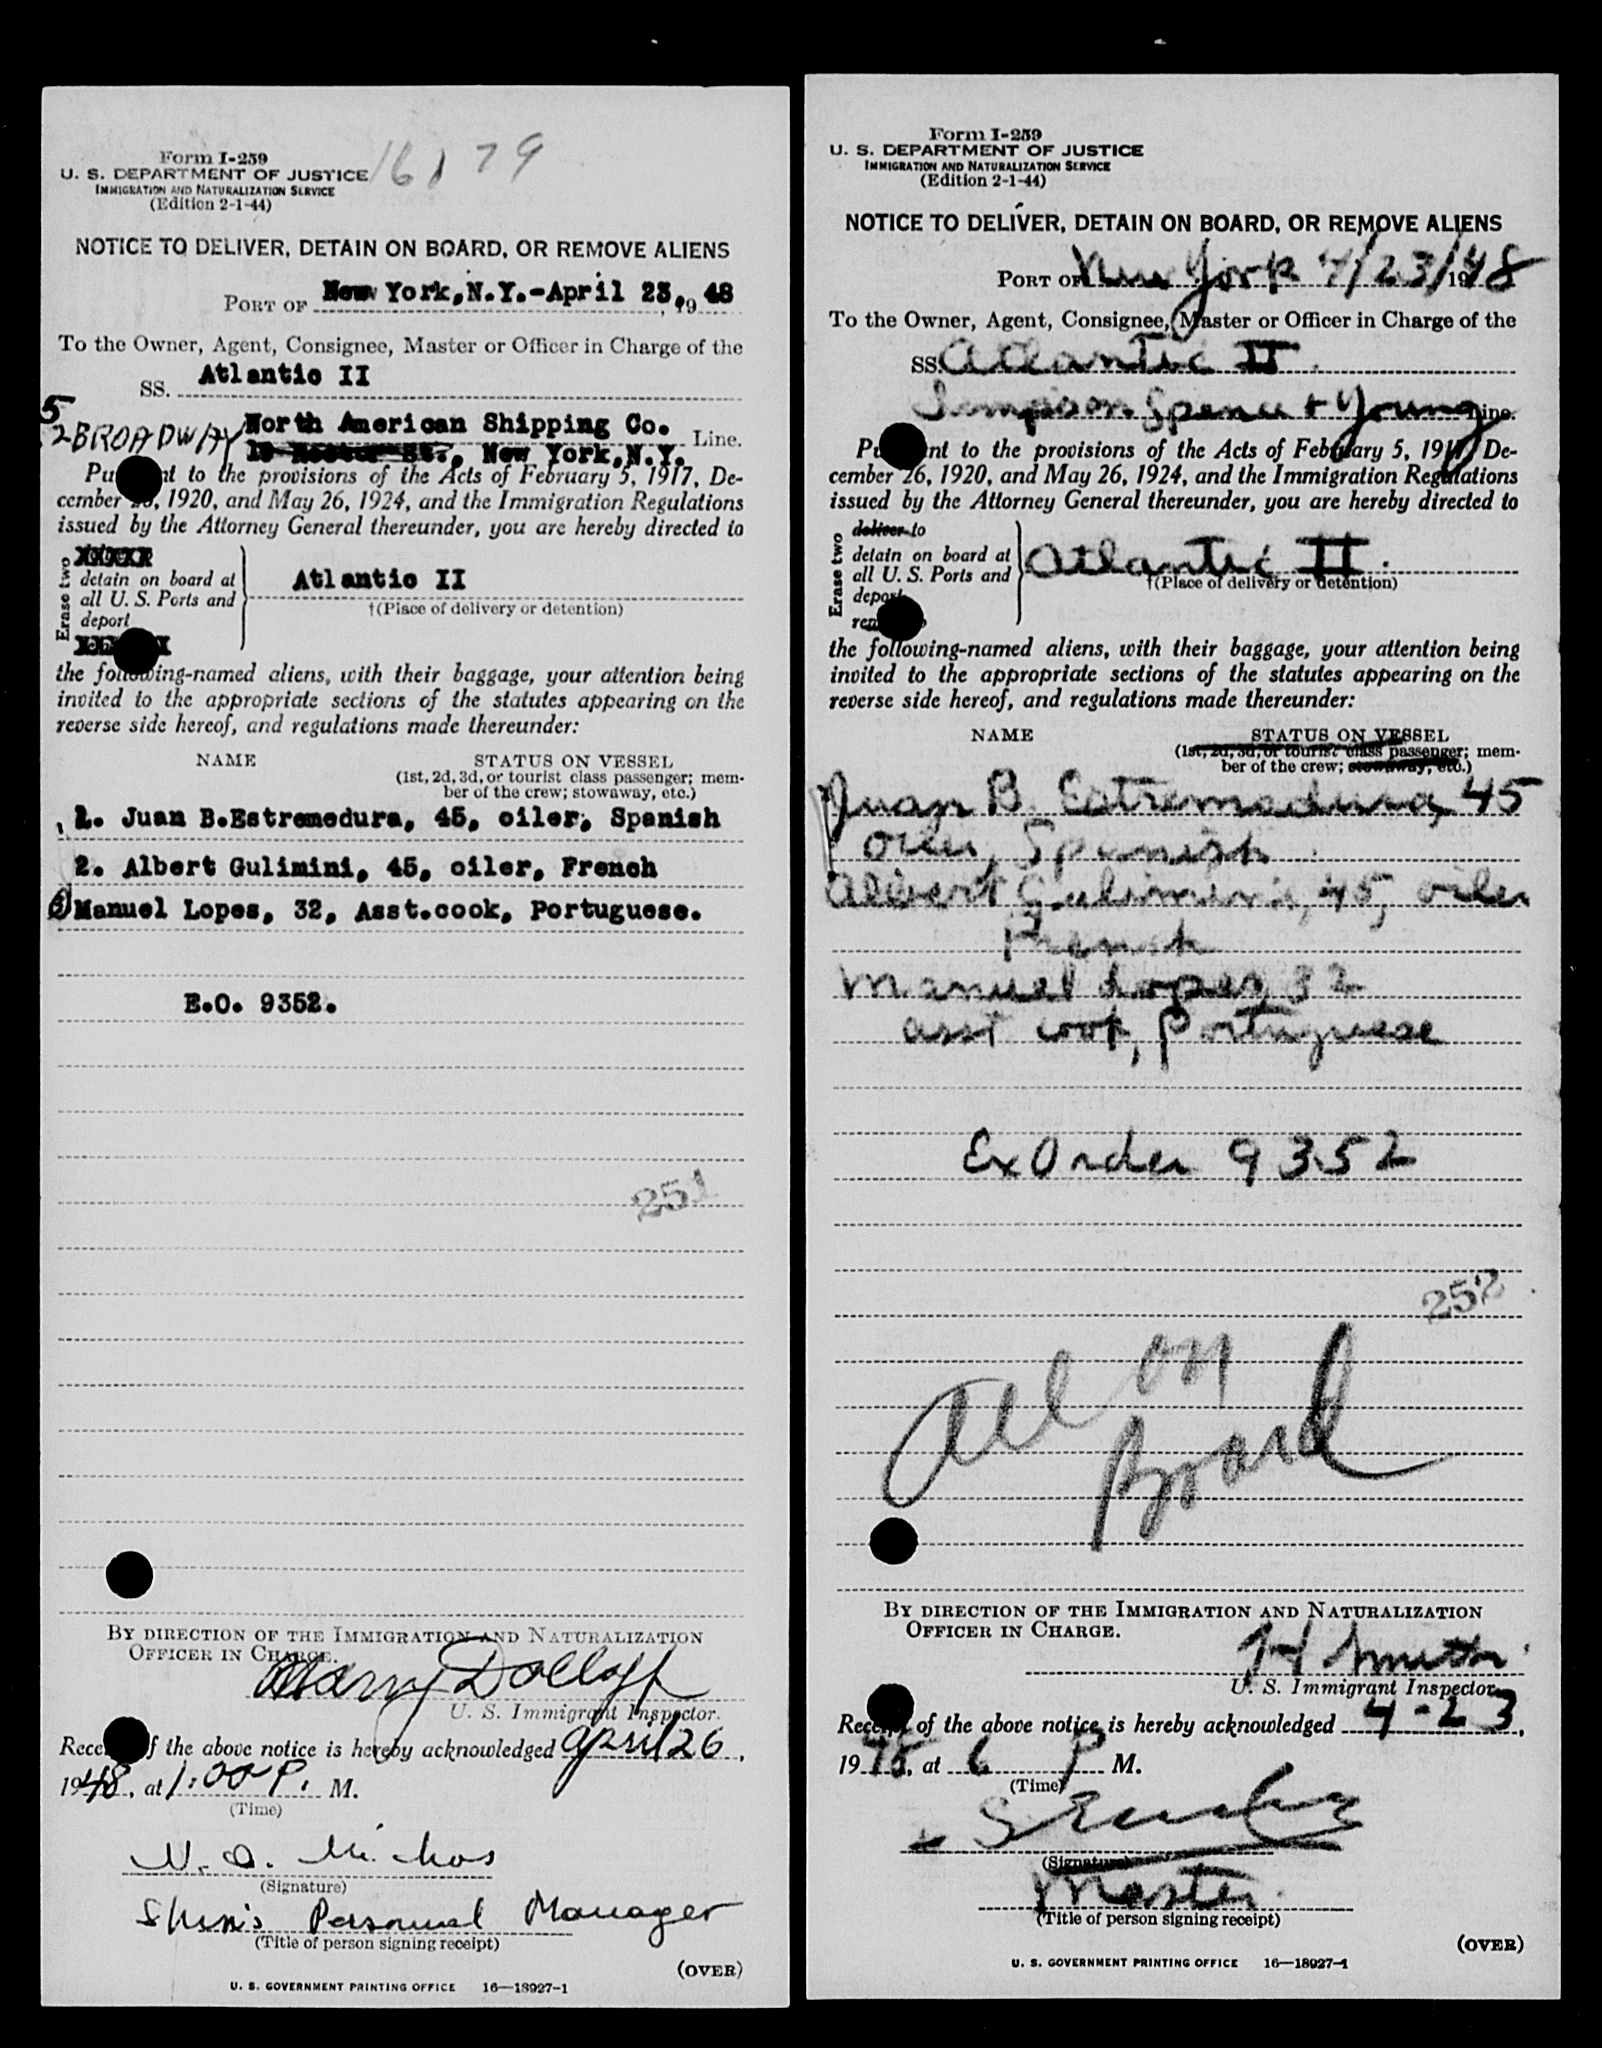 Form I-259
U. S. DEPARTMENT OF JUSTICE
IMMIGRATION AND NATURALIZATION SERVICE
(Edition 2-1-44)
16179
NOTICE TO DELIVER, DETAIN ON BOARD, OR REMOVE ALIENS
PORT OF New York,N.Y.-April 23, 1948
To the Owner, Agent, Consignee, Master or Officer in Charge of the
SS. Atlantic II
5
2 BROADWAY North American Shipping Co. Line.
19 Rector St., New York,N.Y.
Pu nt to the provisions of the Acts of February 5, 1917, De-
cember 26, 1920, and May 26, 1924, and the Immigration Regulations
issued by the Attorney General thereunder, you are hereby directed to
Erase two
XXXXX
detain on board at
all U. S. Ports and
deport
Atlantic II
†(Place of delivery or detention)
the following-named aliens, with their baggage, your attention being
invited to the appropriate sections of the statutes appearing on the
reverse side hereof, and regulations made thereunder:
NAME STATUS ON VESSEL
(1st, 2d, 3d, or tourist class passenger; mem-
ber of the crew; stowaway, etc.)
1. Juan B.Estremedura, 45, oiler, Spanish
2. Albert Gulimini, 45, oiler, French
3 Manuel Lopes, 32, Asst.cook, Portuguese.
E.O. 9352.
251
BY DIRECTION OF THE IMMIGRATION AND NATURALIZATION
OFFICER IN CHARGE.
Harry Dolloff
U. S. Immigrant Inspector.
Rece f the above notice is hereby acknowledged April 26,
1948, at 1:00 P. M.
(Time)
N. D. Michos
(Signature)
Ship's Personnel Manager
(Title of person signing receipt)
(OVER)
U. S. GOVERNMENT PRINTING OFFICE 16—18927-1
Form I-259
U. S. DEPARTMENT OF JUSTICE
IMMIGRATION AND NATURALIZATION SERVICE
(Edition 2-1-44)
NOTICE TO DELIVER, DETAIN ON BOARD, OR REMOVE ALIENS
PORT OF New York 4/23/1948
To the Owner, Agent, Consignee, Master or Officer in Charge of the
SS. Atlantic II.
Simpson Spence & Young Line.
Pu nt to the provisions of the Acts of February 5, 1917, De-
cember 26, 1920, and May 26, 1924, and the Immigration Regulations
issued by the Attorney General thereunder, you are hereby directed to
Erase two
deliver to
detain on board at
all U. S. Ports and
deport
Atlantic II.
†(Place of delivery or detention)
the following-named aliens, with their baggage, your attention being
invited to the appropriate sections of the statutes appearing on the
reverse side hereof, and regulations made thereunder:
NAME STATUS ON VESSEL
(1st, 2d, 3d, or tourist class passenger; mem-
ber of the crew; stowaway, etc.)
Juan B. Estremadura, 45
Oiler, Spanish
Albert Gulimini, 45, oiler
French
Manuel Lopes 32
asst cook, Portuguese
Ex Order 9352
252
All on
Board
BY DIRECTION OF THE IMMIGRATION AND NATURALIZATION
OFFICER IN CHARGE.
H Smith
U. S. Immigrant Inspector.
Receipt of the above notice is hereby acknowledged 4-23,
1948, at 6 P M.
(Time)
(Signature)
Master
(Title of person signing receipt)
(OVER)
U. S. GOVERNMENT PRINTING OFFICE 16—18927-1